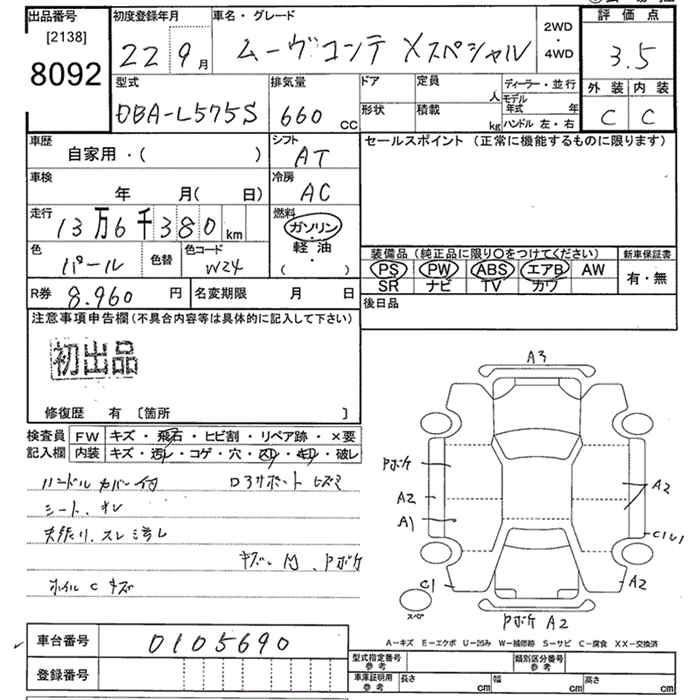 出品番号
[2138]
8092
初度登録年月
22 9月
車名・グレード
ムーヴコンテ Xスペシャル
2WD
・
4WD
評価点
3.5
外装 内装
C C
型式
DBA-L575S
排気量
660 CC
ドア
形状
定員 人
積載 kg
ディーラー・並行
モデル年式 年
ハンドル 左・右
車歴
自家用・( )
シフト
AT
セールスポイント (正常に機能するものに限ります)
車検
年 月( 日)
冷房
AC
走行
13万6千380km
燃料
ガソリン
・
軽油
( )
色
パール
色替
色コード
W24
装備品(純正品に限り〇をつけてください)
PS PW ABS エアB AW
SR ナビ TV カワ
新車保証書
有・無
R券 8.960円
名変期限 月 日
後日品
注意事項申告欄(不具合内容等は具体的に記入して下さい)
初出品
修復歴 有 [箇所 ]
検査員
記入欄
FW キズ・飛石・ヒビ割・リペア跡・×要
内装 キズ・汚レ・コゲ・穴・スレ・キレ・破レ
ハンドルカバー付
シート、
ホイルCキズ
A3
Pボケ
A2
A1
A2
C1
A2
C1
スペア
Pボケ A2
A-キズ E-エクボ U-凹み W-補修跡 S-サビ C-腐食 XX-交換済
車台番号
0105690
登録番号
型式指定番号
参考
類別区分番号
参考
車庫証明用
参考
長さ cm
幅 cm
高さ cm